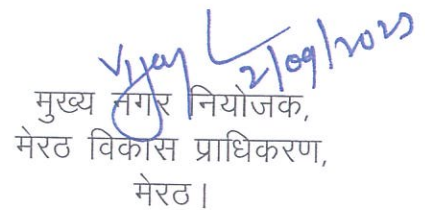 Vijay
2/09/2025
मुख्य नगर नियोजक,
मेरठ विकास प्राधिकरण,
मेरठ।